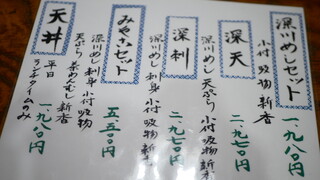 深川めしセット
小付 吸物 新香
一、九八〇円
深天
深川めし 天ぷら 小付 吸物 新香
二、九七〇円
深刺
深川めし 刺身 小付 吸物 新香
二、九七〇円
みやこセット
深川めし 刺身 小付 吸物
天ぷら 茶わんむし 新香
五、五〇〇円
天丼
平日
ランチタイムのみ
一、九八〇円